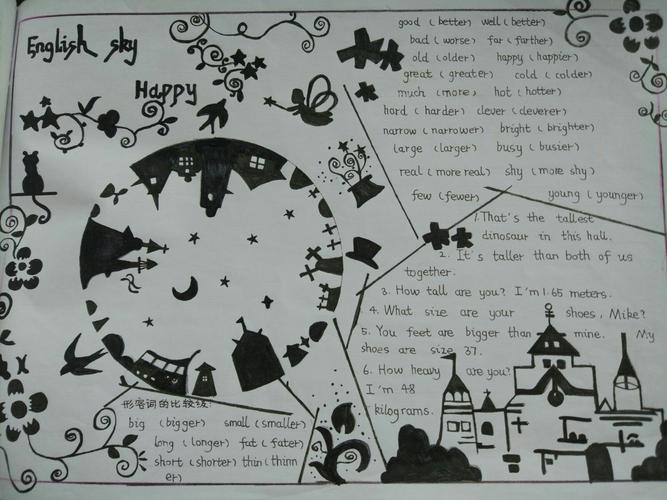 English sky
Happy
good (better) well (better)
bad (worse) far (farther)
old (older) happy (happier)
great (greater) cold (colder)
much (more) hot (hotter)
hard (harder) clever (cleverer)
narrow (narrower) bright (brighter)
large (larger) busy (busier)
real (more real) shy (more shy)
few (fewer) young (younger)
1. That's the tallest
dinosaur in this hall.
2. It's taller than both of us
together.
3. How tall are you? I'm 1.65 meters.
4. What size are your shoes, Mike?
5. You feet are bigger than mine. My
shoes are size 37.
6. How heavy are you?
I'm 48
kilograms.
形容词的比较级
big (bigger) small (smaller)
long (longer) fat (fater)
short (shorter) thin (thinn
er)